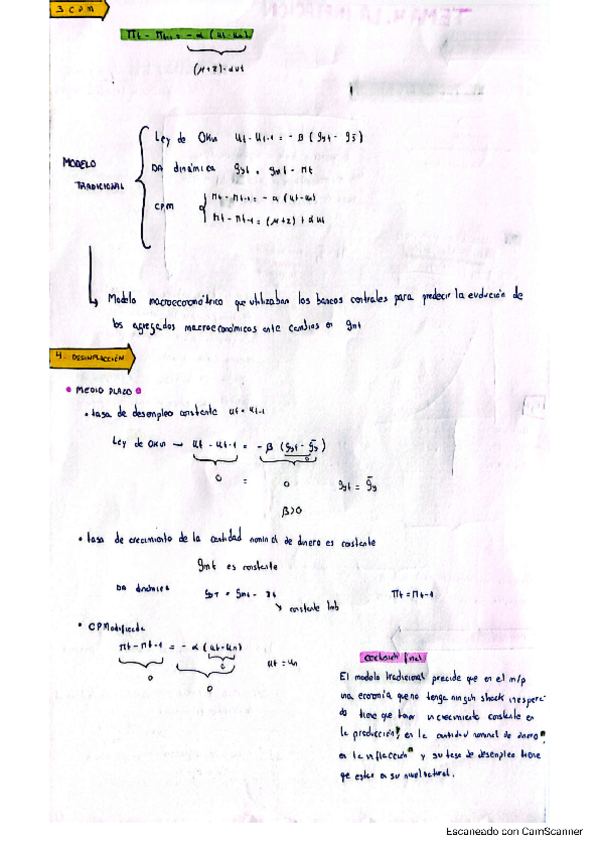 3. C.P.M
πt - πt-1 = - α (ut - un)
(μ+z) - αut
MODELO TRADICIONAL
Ley de Okun ut - ut-1 = - β (gyt - g̅y̅)
DA dinámica gyt = gmt - πt
CPM
πt - πt-1 = - α (ut - un)
πt - πt-1 = (μ+z) + αut
Modelo macroeconométrico que utilizaban los bancos centrales para predecir la evolución de
los agregados macroeconómicos ante cambios en gmt
4. DESINFLACCIÓN
• MEDIO PLAZO •
• tasa de desempleo constante ut = ut-1
Ley de Okun → ut - ut-1 = - β (gyt - g̅y)
0 = 0 gyt = g̅y
β>0
• tasa de crecimiento de la cantidad nominal de dinero es constante
gmt es constante
DA dinámica gyt = gmt - πt πt = πt-1
constante
• CPModificada
πt - πt-1 = - α (ut - un)
0 0 0 ut = un
conclusión final
El modelo tradicional precide que en el m/p
una economía que no tenga ningún shock inespera
do tiene que tener un crecimiento constante en
la producción, en la cantidad nominal de dinero
en la inflacción y su tasa de desempleo tiene
que estar en su nivel natural.
Escaneado con CamScanner